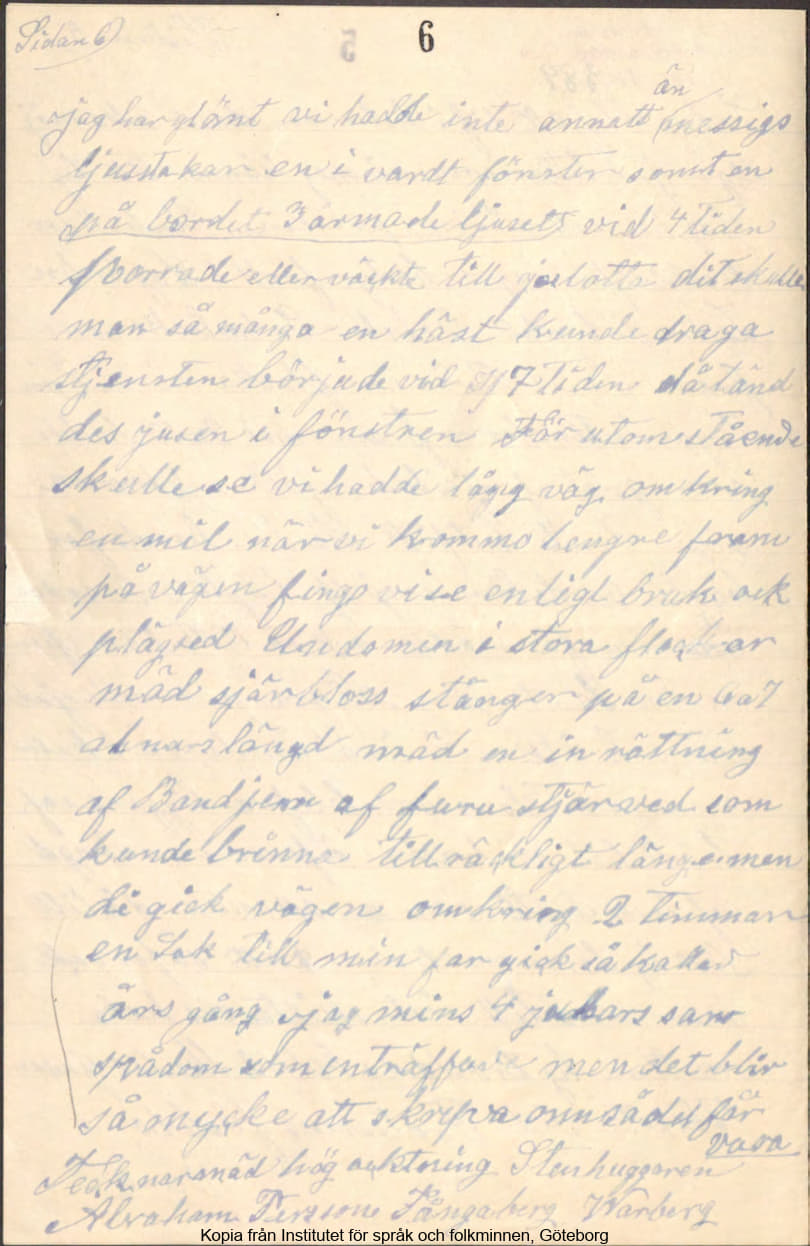 Sidan 6)
6
jag har glömt vi hadde inte annatt än messigs
ljusstakar en i vardt fönster samt en
på bordet 3 armade ljusets vid 4 tiden
porrade eller väckte till julotta dit skulle
man så många en häst kunde draga
stjensten började vid 1/2 7 tiden då tänd
des jusen i fönstren För utomstående
skulle se vi hadde lång väg omkring
en mil när vi kommo lengre fram
på vägen fingo vi se enligt bruk ock
plägsed Undomen i stora flockar
mäd stjärbloss stänger på en 6 a 7
alnars längd mäd en inrättning
af Bandjern af furu stjärved som
kunde brinna tillräkligt länge men
di gick vägen omkring 2 timmar
en Sak till min far gick så kallad
års gång jag mins 4 julars sam
spådom som inträffade men det blir
så mycke att skripva om sådu får
vara
Tecknar mäd hög acktning Stenhuggaren
Abraham Perzson Tångaberg Warberg
Kopia från Institutet för språk och folkminnen, Göteborg